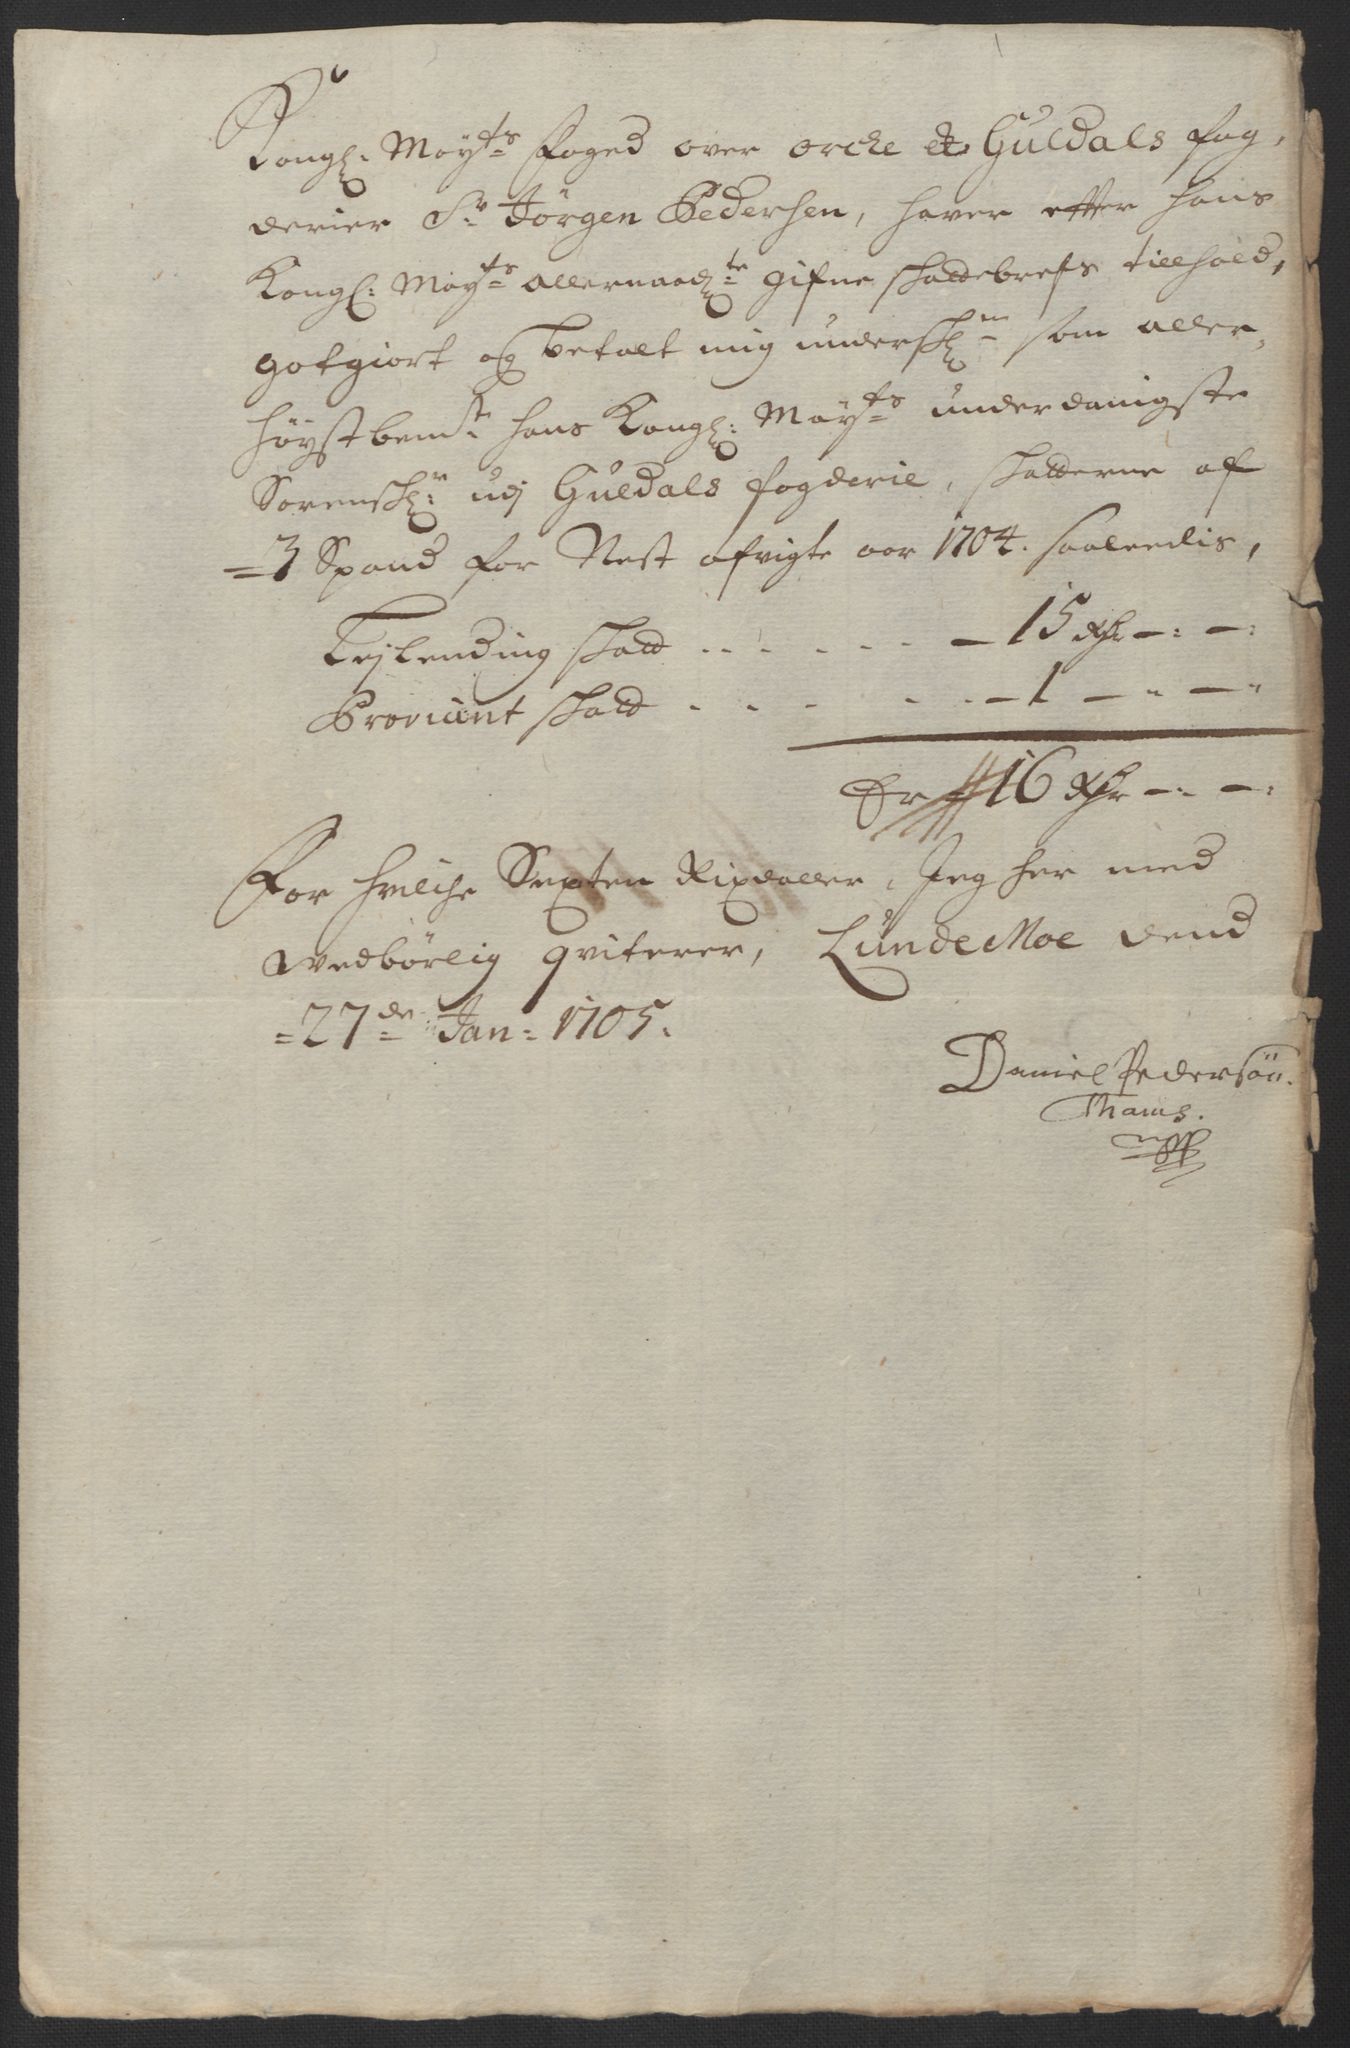 Kongl: Mayts Foged over Orcke et Guldals fog,
derier Sr Jörgen Pedersen, haver efter hans
Kongl: Mayts allernaadte gifne skattebrefs tillhold,
gotgiort og betalt mig underskne som aller,
höystbemte hans Kongl: Mayts underdanigste
Sorenskr: udj Guldals fogderie, skatterne af
=3 Spand for Nest afvigte aar 1704. saaleedis,
Lejlending skatt . . . . . . — 15 Rdr —:—:
Proviant skatt . . . . . . — 1 — " — "
Er 16 Rdr —:—:
For hvilche Sexten Rixdaller, Jeg her med
vedbörlig qviterer, LundeMoe dend
=27de Jan: 1705.
Daniel Pedersön.
Thams.